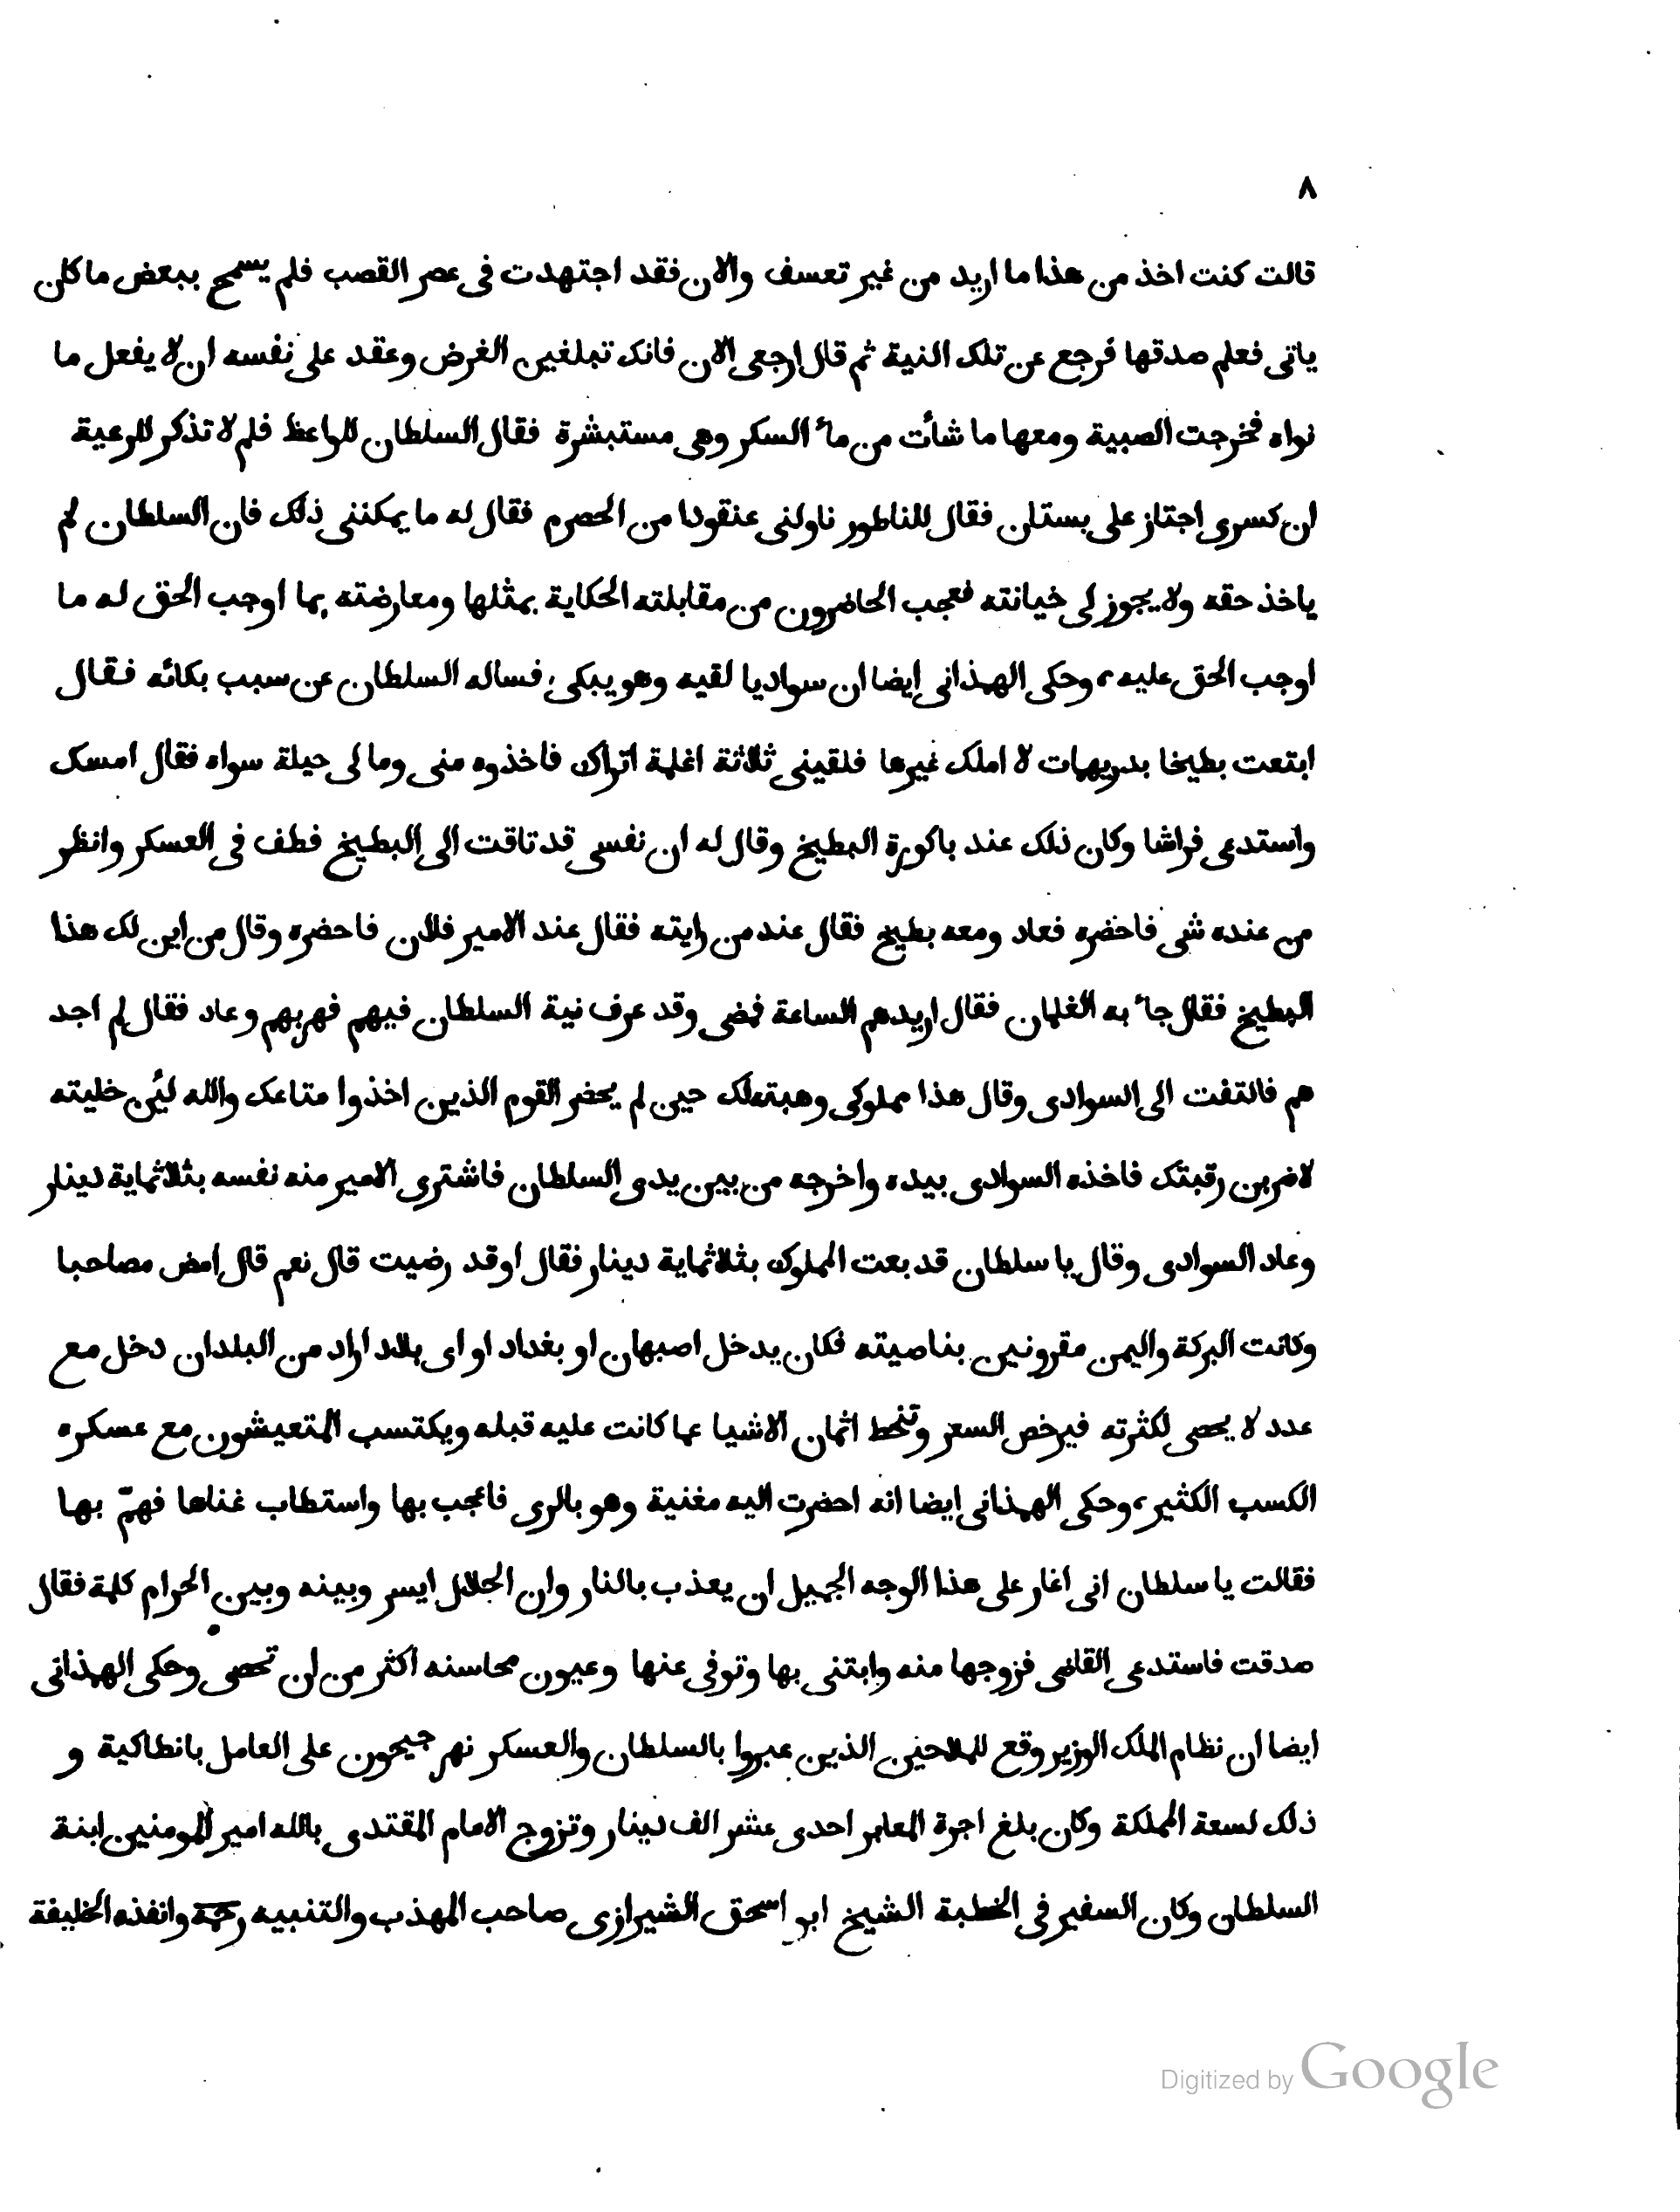 ٨
قالت كنت اخذ من هذا ما اريد من غير تعسف والان فقد اجتهدت في عصر القصب فلم يسمح ببعض ما كان
ياتى فعلم صدقها فرجع عن تلك النية ثم قال ارجعى الان فانك تبلغين الغرض وعقد على نفسه ان لا يفعل ما
نواه فخرجت الصبية ومعها ما شأت من مآ السكر وهى مستبشرة فقال السلطان للواعظ فلم لا تذكر للرعية
ان كسرى اجتاز على بستان فقال للناطور ناولنى عنقودا من الحصرم فقال له ما يمكننى ذلك فان السلطان لم
ياخذ حقه ولا يجوز لى خيانته فعجب الحاضرون من مقابلته الحكاية بمثلها ومعارضته بما اوجب الحق له ما
اوجب الحق عليه، وحكى الهمذانى ايضا ان سواديا لقيه وهو يبكى، فساله السلطان عن سبب بكائه فقال
ابتعت بطيخا بدريهمات لا املك غيرها فلقينى ثلاثة اغلمة اتراك فاخذوه منى وما لى حيلة سواه فقال امسك
واستدعى فراشا وكان ذلك عند باكورة البطيخ وقال له ان نفسى قد تاقت الى البطيخ فطف فى العسكر وانظر
من عنده شى فاحضره فعاد ومعه بطيخ فقال عند من رايته فقال عند الامير فلان فاحضره وقال من اين لك هذا
البطيخ فقال جآ به الغلمان فقال اريدهم الساعة فمضى وقد عرف نية السلطان فيهم فهربهم وعاد فقال لم اجد
هم فالتفت الى السوادى وقال هذا مملوكى وهبته لك حين لم يحضر القوم الذين اخذوا متاعك والله لئن خليته
لاضربن رقبتك فاخذه السوادى بيده واخرجه من بين يدى السلطان فاشترى الامير منه نفسه بثلاثماية دينار
وعاد السوادى وقال يا سلطان قد بعت المملوك بثلاثماية دينار فقال اوقد رضيت قال نعم قال امض مصاحبا
وكانت البركة واليمن مقرونين بناصيته فكان يدخل اصبهان او بغداد او اى بلاد اراد من البلدان دخل مع
عدد لا يحصى لكثرته فيرخص السعر وتنحط اثمان الاشيا عما كانت عليه قبله ويكتسب المتعيشون مع عسكره
الكسب الكثير، وحكى الهمذانى ايضا انه احضرت اليه مغنية وهو بالرى فاعجب بها واستطاب غناها فهمّ بها
فقالت يا سلطان انى اغار على هذا الوجه الجميل ان يعذب بالنار وان الحلال ايسر وبينه وبين الحرام كلمة فقال
صدقت فاستدعى القاضى فزوجها منه وابتنى بها وتوفى عنها وعيون محاسنه اكثر من ان تحصى وحكى الهمذانى
ايضا ان نظام الملك الوزير وقع للملاحين الذين عبروا بالسلطان والعسكر نهر جيحون على العامل بانطاكية و
ذلك لسعة المملكة وكان بلغ اجرة المعابر احدى عشر الف دينار وتزوج الامام المقتدى بالله امير المومنين ابنة
السلطان وكان السفير فى الخطبة الشيخ ابو اسحق الشيرازى صاحب المهذب والتنبيه رحمة وانفذه الخليفة
Digitized by Google